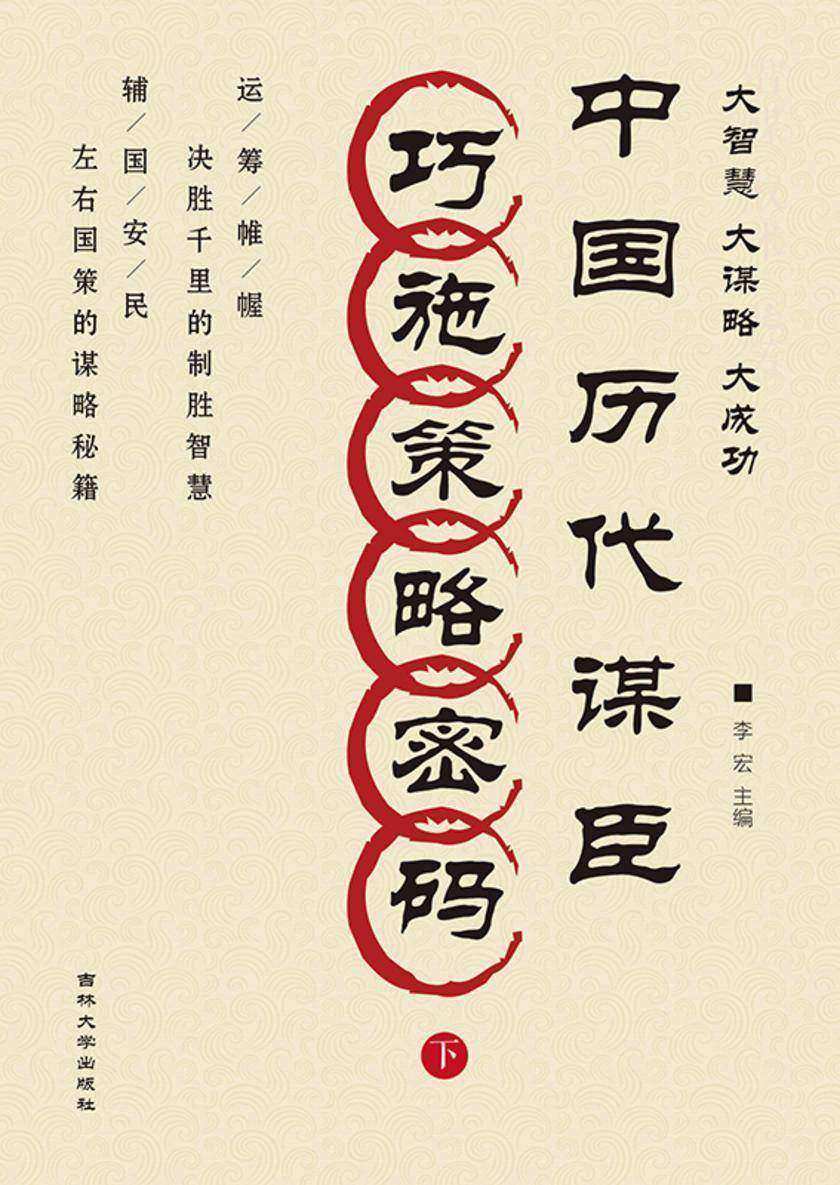 大智慧 大谋略 大成功
■ 李宏 主编
中国历代谋臣
巧施策略密码
下
运/筹/帷/幄
决胜千里的制胜智慧
辅/国/安/民
左右国策的谋略秘籍
吉林大学出版社